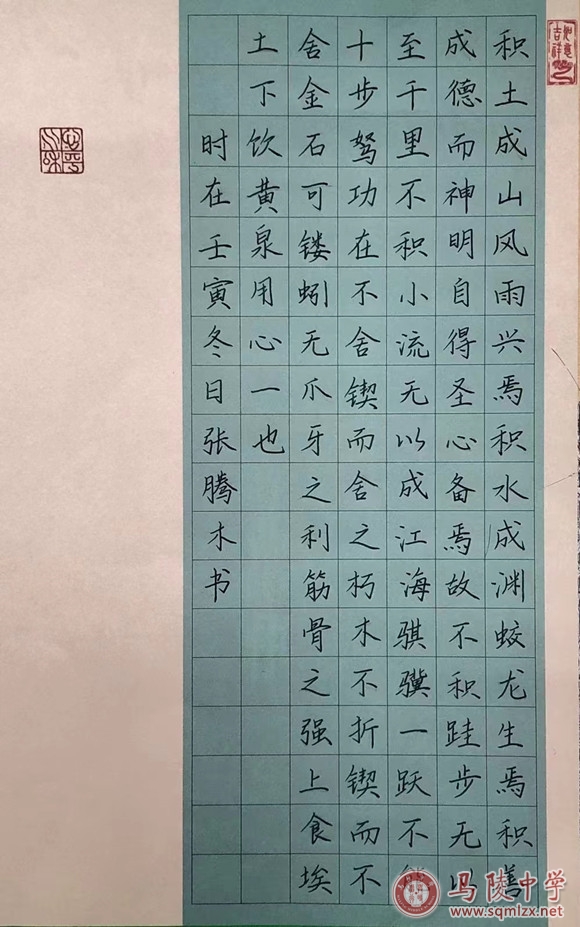 如意吉祥
积土成山风雨兴焉积水成渊蛟龙生焉积善
成德而神明自得圣心备焉故不积跬步无以
至千里不积小流无以成江海骐骥一跃不
十步驽功在不舍锲而舍之朽木不折锲而不
舍金石可镂蚓无爪牙之利筋骨之强上食埃
土下饮黄泉用心一也
时在壬寅冬日张腾木书
马陵中学
www.sqmlzx.net